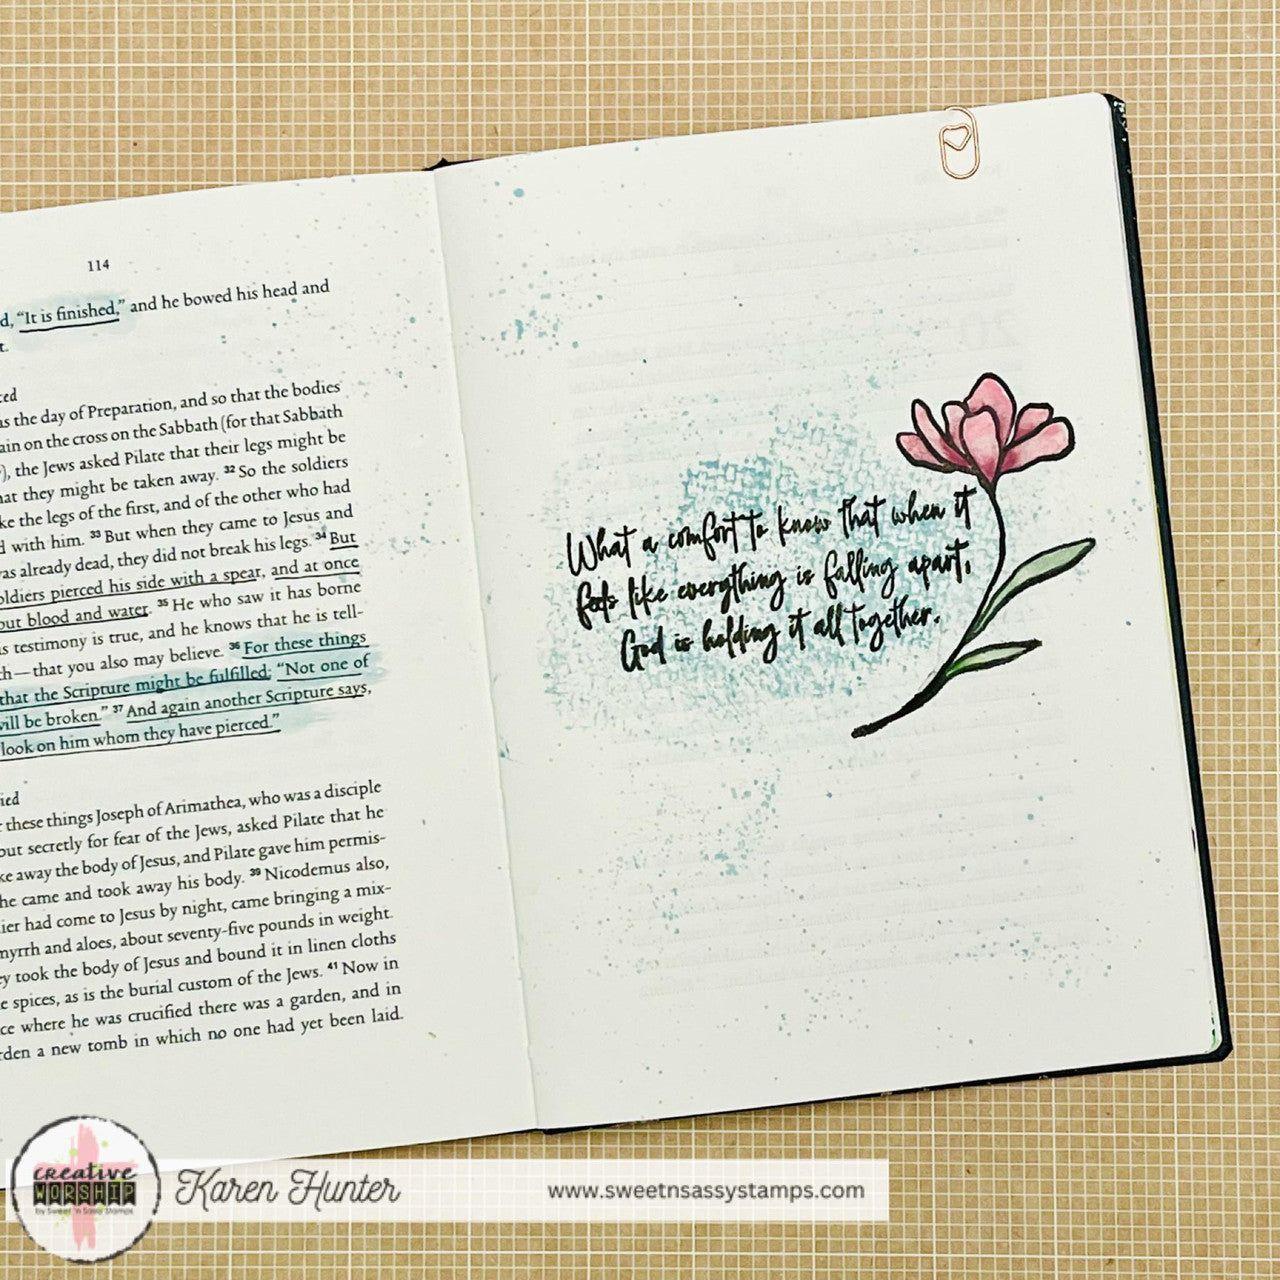 114
d, “It is finished,” and he bowed his head and
t.
as the day of Preparation, and so that the bodies
ain on the cross on the Sabbath (for that Sabbath
), the Jews asked Pilate that their legs might be
hat they might be taken away. 32 So the soldiers
ke the legs of the first, and of the other who had
d with him. 33 But when they came to Jesus and
as already dead, they did not break his legs. 34 But
oldiers pierced his side with a spear, and at once
out blood and water. 35 He who saw it has borne
s testimony is true, and he knows that he is tell-
h—that you also may believe. 36 For these things
that the Scripture might be fulfilled: “Not one of
will be broken.” 37 And again another Scripture says,
look on him whom they have pierced.”
ied
r these things Joseph of Arimathea, who was a disciple
out secretly for fear of the Jews, asked Pilate that he
ke away the body of Jesus, and Pilate gave him permis-
he came and took away his body. 39 Nicodemus also,
lier had come to Jesus by night, came bringing a mix-
myrrh and aloes, about seventy-five pounds in weight.
ey took the body of Jesus and bound it in linen cloths
e spices, as is the burial custom of the Jews. 41 Now in
ce where he was crucified there was a garden, and in
rden a new tomb in which no one had yet been laid.
What a comfort to know that when it
feels like everything is falling apart,
God is holding it all together.
creative
WORSHIP
by Sweet 'n Sassy Stamps
Karen Hunter
www.sweetnsassystamps.com